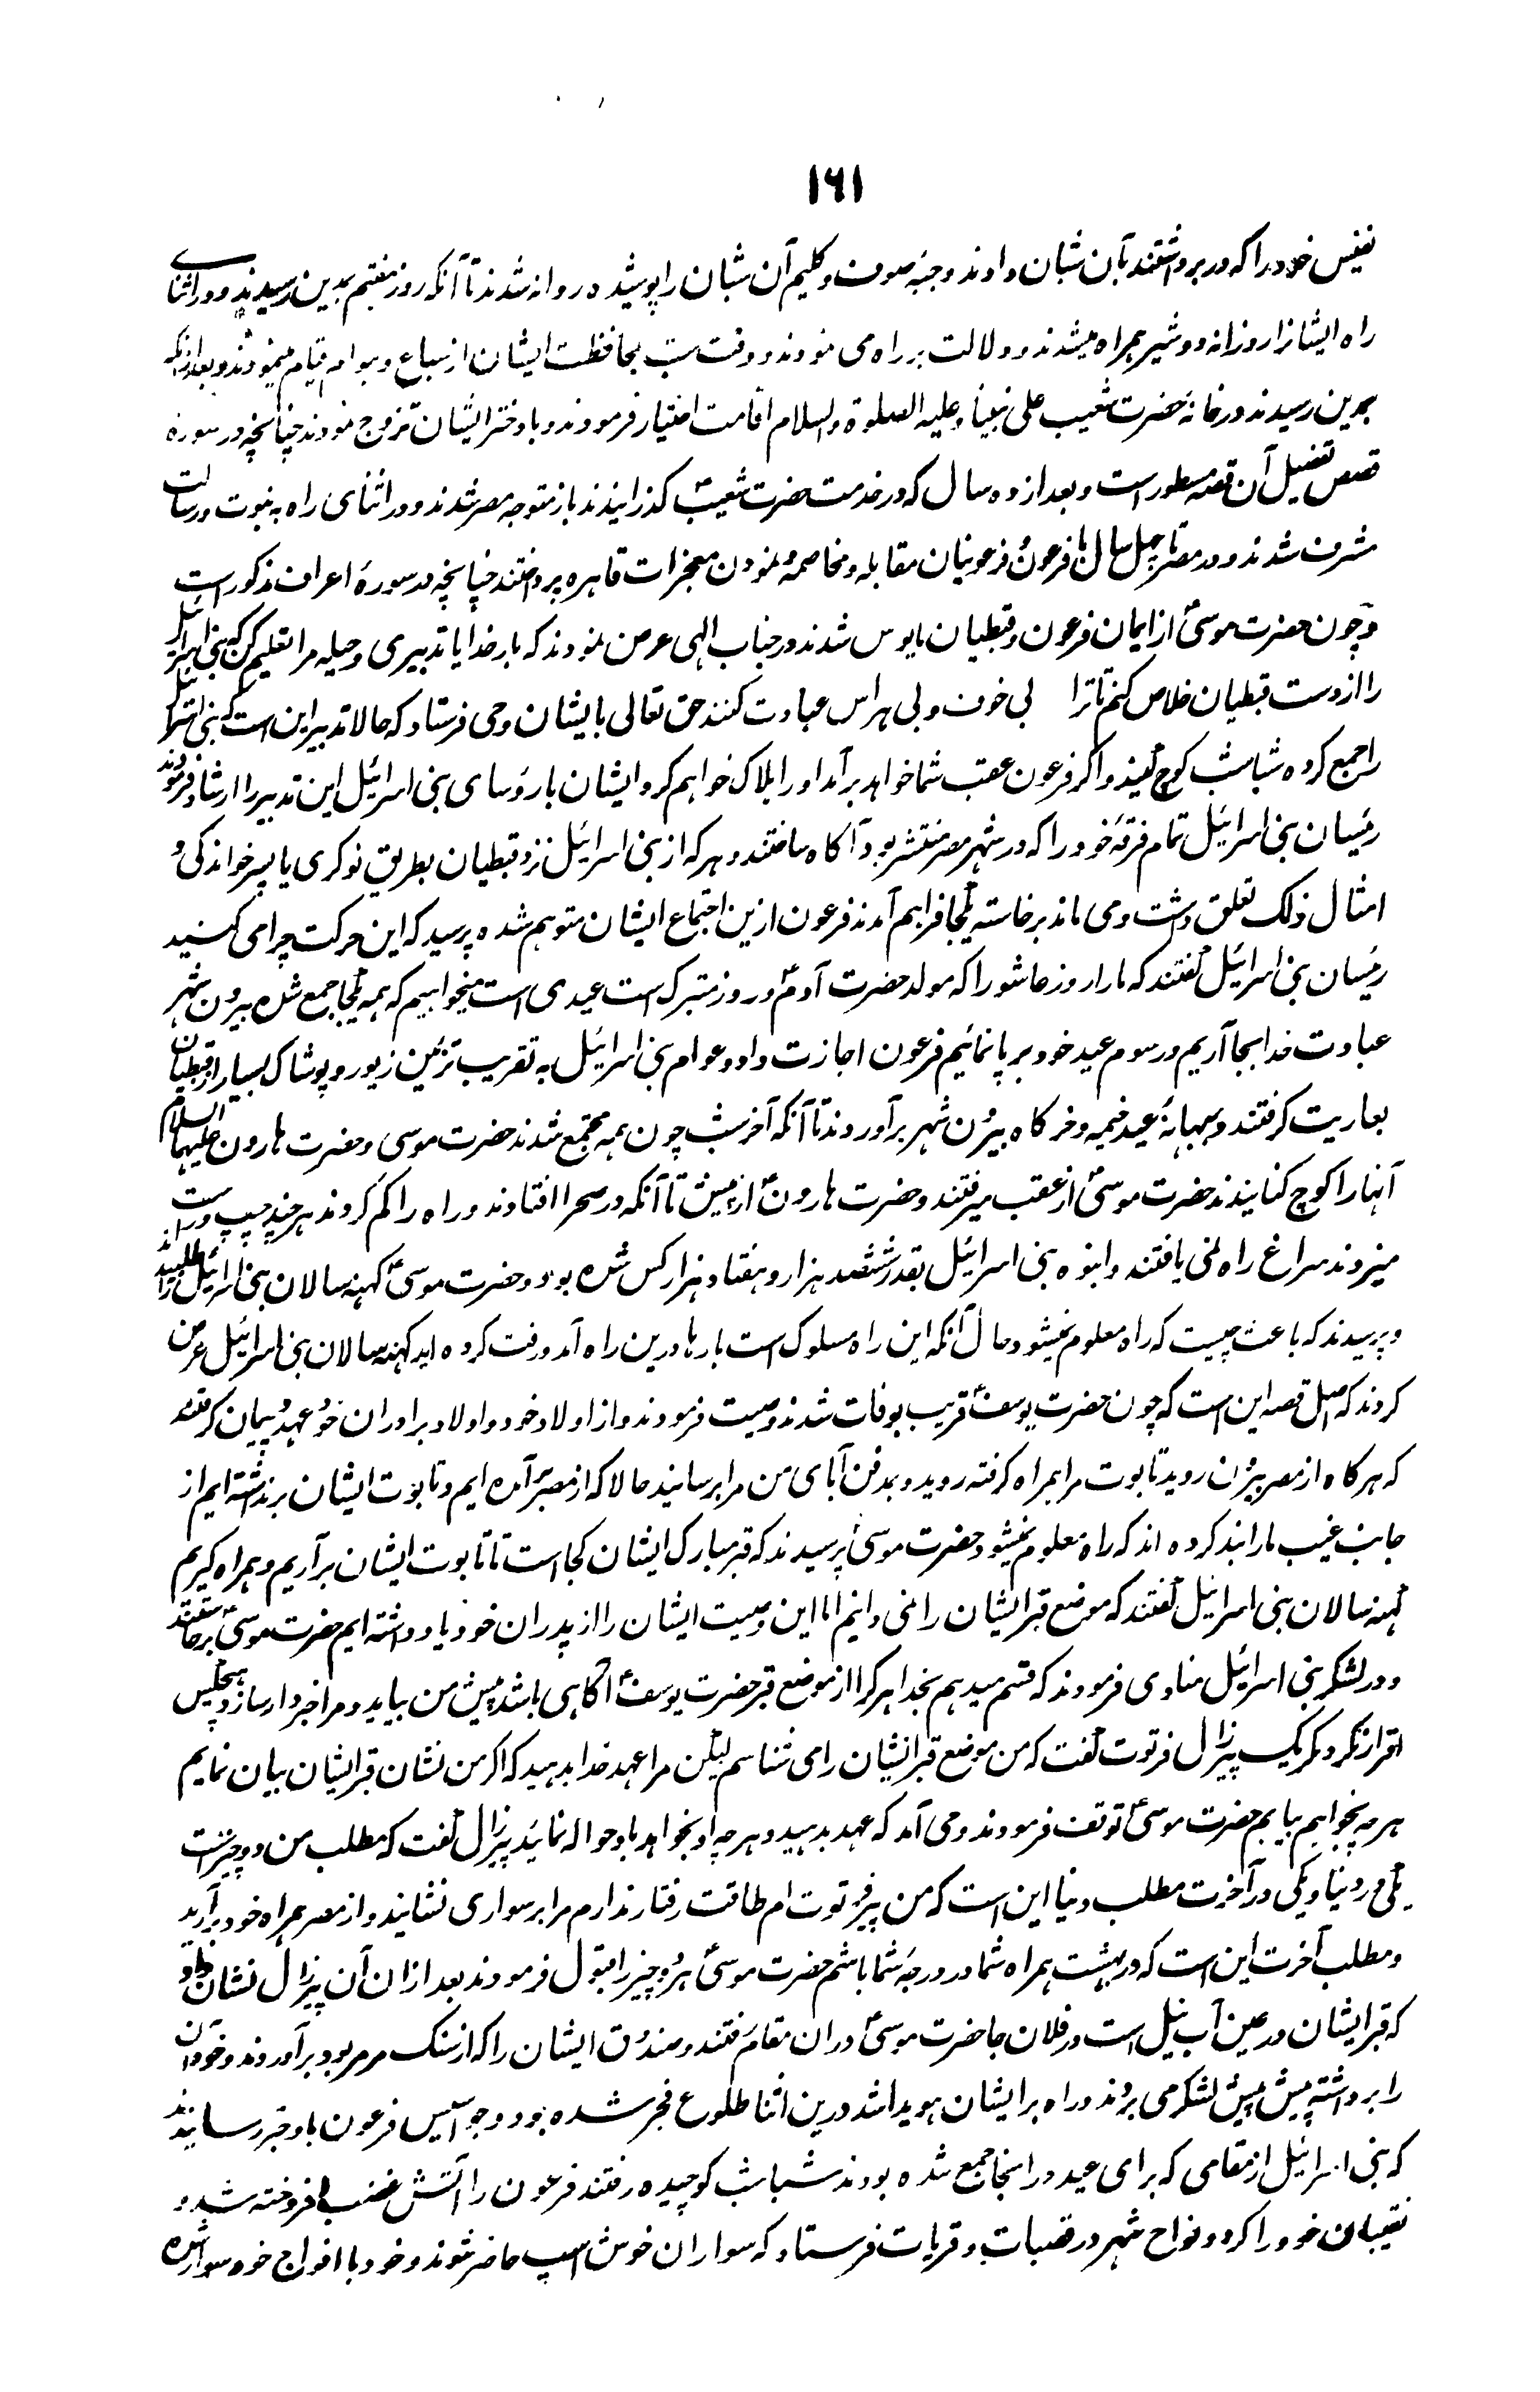 ۱۶۱
نفیس خود را که در بر داشتند بآن شبان دادند و جبّه صوف و کلیم آن شبان را پوشیده روانه شدند تا آنکه روز هفتم بمدین رسیدند و در اثنای
راه ایشانرا روزانه دو شیر همراه میشدند و دلالت بر راه می نمودند و وقت شب بمحافظت ایشان از سباع و هوام قیام مینمودند و بعد ازانکه
بمدین رسیدند در خانهٔ حضرت شعیب علی نبینا و علیه الصلوة والسلام اقامت اختیار فرمودند و با دختر ایشان تزوج نمودند چنانچه در سوره
قصص تفصیل آن قصه مسطور است و بعد از ده سال که در خدمت حضرت شعیبؑ گذرانیدند باز متوجه مصر شدند و در اثنای راه به نبوت و رسالت
مشرف شدند و در مصر تا چهل سال با فرعون و فرعونیان مقابله و مخاصمه و نمودن معجزات قاهره پرداختند چنانچه در سورهٔ اعراف مذکور است
و چون حضرت موسیؑ از ایمان فرعون و قبطیان مایوس شدند در جناب الهی عرض نمودند که بار خدایا تدبیری و حیله مرا تعلیم کن که بنی اسرائیل
را از دست قبطیان خلاص کنم تا ترا بی خوف و بی هراس عبادت کنند حق تعالی بایشان وحی فرستاد که حالا تدبیر این است که بنی اسرائیل
را جمع کرده شباشب کوچ کنید و اگر فرعون عقب شما خواهد برآمد او را هلاک خواهم کرد ایشان با رؤسای بنی اسرائیل این تدبیر را ارشاد فرمودند
رئیسان بنی اسرائیل تمام فرقهٔ خود را که در شهر مصر منتشر بود آگاه ساختند و هر که از بنی اسرائیل نزد قبطیان بطریق نوکری یا پسر خواندگی و
امثال ذلک تعلق داشت و می ماند برخاسته یکجا فراهم آمدند فرعون ازین اجتماع ایشان متوهم شده پرسید که این حرکت چرا می کنید
رئیسان بنی اسرائیل گفتند که ما را روز عاشورا که مولد حضرت آدمؑ و روز متبرک است عیدی است میخواهیم که همه یکجا جمع شده بیرون شهر
عبادت خدا بجا آریم و رسوم عید خود برپا نمائیم فرعون اجازت داد و عوام بنی اسرائیل به تقریب تزئین زیور و پوشاک بسیار از قبطیان
بعاریت گرفتند و ببهانهٔ عید خیمه و خرگاه بیرون شهر برآوردند تا آنکه آخر شب چون همه مجتمع شدند حضرت موسی و حضرت هارون علیهما السلام
آنها را کوچ کنانیدند حضرت موسیؑ از عقب میرفتند و حضرت هارونؑ از پیش تا آنکه در صحرا افتادند و راه را گم کردند هر چند چپ و راست
میزدند سراغ راه نمی یافتند و انبوه بنی اسرائیل بقدر ششصد هزار و هفتاد هزار کس شده بود و حضرت موسیؑ کهنه سالان بنی اسرائیل را طلبیدند
و پرسیدند که باعث چیست که راه معلوم نمیشود و حال آنکه این راه مسلوک است بارها درین راه آمد و رفت کرده اید کهنه سالان بنی اسرائیل عرض
کردند که اصل قصه این است که چون حضرت یوسفؑ قریب بوفات شدند وصیت فرمودند و از اولاد خود و اولاد برادران خود عهد و پیمان گرفتند
که هرگاه از مصر بیرون روید تابوت مرا همراه گرفته روید و بمدفن آبای من مرا برسانید حالا که از مصر برآمده ایم و تابوت ایشان برنداشته ایم از
جانب غیب ما را بند کرده اند که راه معلوم نمیشود حضرت موسیؑ پرسیدند که قبر مبارک ایشان کجا است تا تابوت ایشان برآریم و همراه گیریم
کهنه سالان بنی اسرائیل گفتند که موضع قبر ایشان را نمی دانیم اما این وصیت ایشان را از پدران خود یاد داشته ایم حضرت موسیؑ برخاستند
و در لشکر بنی اسرائیل منادی فرمودند که قسم میدهم بخدا هر کرا از موضع قبر حضرت یوسفؑ آگاهی باشد پیش من بیاید و مرا خبردار سازد هیچکس
اقرار نکرد مگر یک پیرزال فرتوت گفت که من موضع قبر ایشان را می شناسم لیکن مرا عهد خدا بدهید که اگر من نشان قبر ایشان بیان نمایم
هر چه بخواهم بیابم حضرت موسیؑ توقف فرمودند وحی آمد که عهد بدهید و هر چه او بخواهد باو حواله نمائید پیرزال گفت که مطلب من دو چیز است
یکی در دنیا و یکی در آخرت مطلب دنیا این است که من پیر فرتوت ام طاقت رفتار ندارم مرا بر سواری نشانید و از مصر همراه خود برآرید
و مطلب آخرت این است که در بهشت همراه شما در درجهٔ شما باشم حضرت موسیؑ هر دو چیز را قبول فرمودند بعد ازان آن پیرزال نشان داد
که قبر ایشان در عین آب نیل است در فلان جا حضرت موسیؑ دران مقام رفتند و صندوق ایشان را که از سنگ مرمر بود برآوردند و خود آن
را برداشته پیش پیش لشکر می بردند و راه بر ایشان هویدا شد درین اثنا طلوع فجر شده بود و جواسیس فرعون باو خبر رسانیدند
که بنی اسرائیل از مقامی که برای عید در اینجا جمع شده بودند شباشب کوچیده رفتند فرعون را آتش غضب افروخته شد و
نقیبان خود را گرد و نواح شهر در قصبات و قریات فرستاد که سواران خوش اسپ حاضر شوند و خود با افواج خود سوار شده